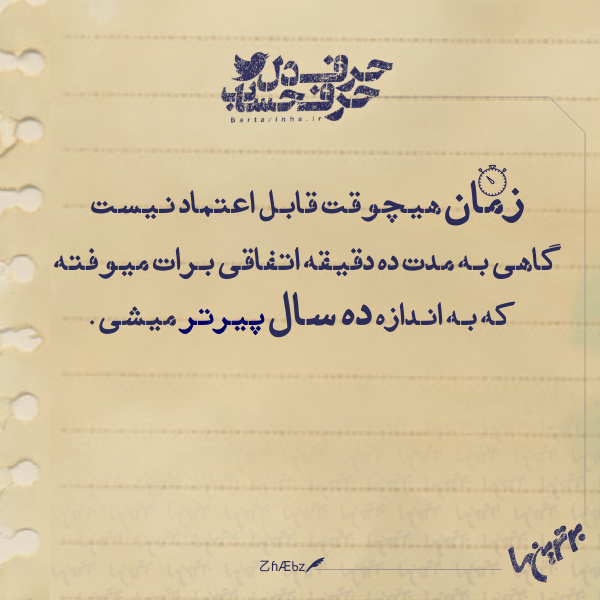 حرف دل
حرف حساب
Bartarinha.ir
زمان هیچوقت قابل اعتماد نیست
گاهی به مدت ده دقیقه اتفاقی برات میوفته
که به اندازه ده سال پیرتر میشی.
ZhÆbz
برترین‌ها